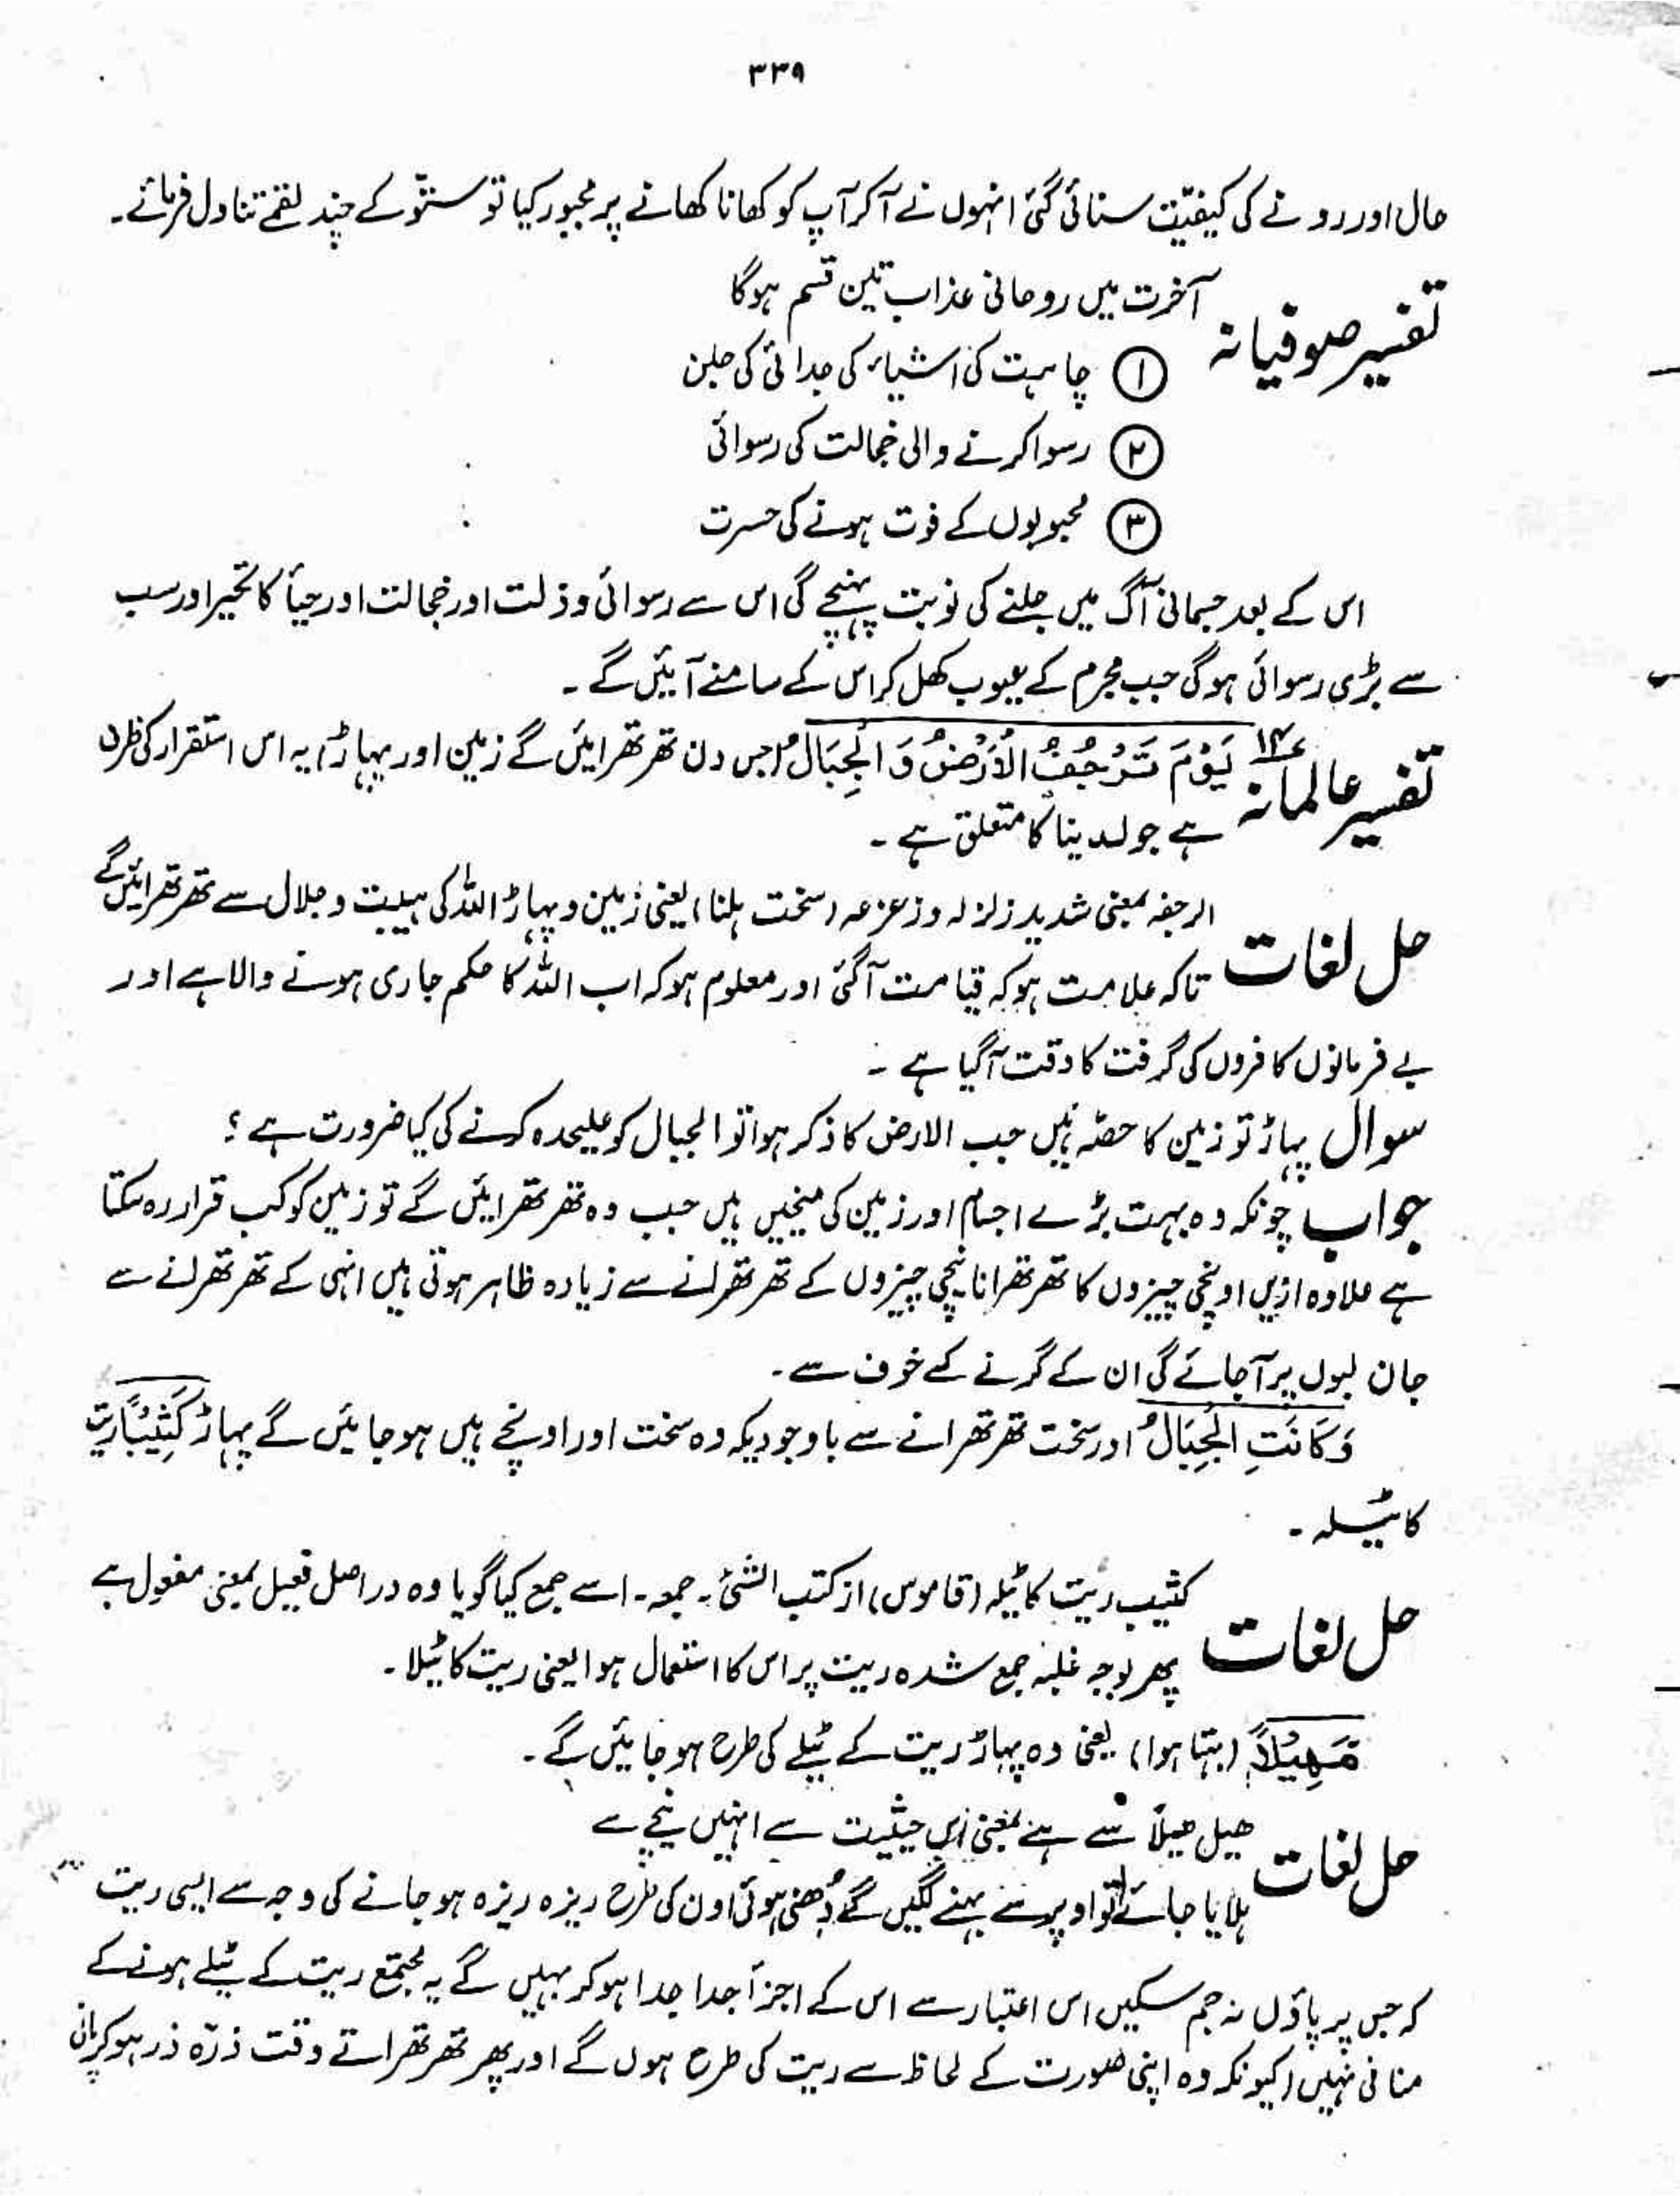 ۳۳۹
حال اور رونے کی کیفیّت سنائی گئی انہوں نے آ کر آپ کو کھانا کھانے پر مجبور کیا تو ستّو کے چند لقمے تناول فرمائے۔
تفسیر صوفیانہ آخرت میں روحانی عذاب تین قسم ہوگا
① چاہت کی اشیاء کی جدائی کی جلن
② رسوا کرنے والی خجالت کی رسوائی
③ محبوبوں کے فوت ہونے کی حسرت
اس کے بعد جسمانی آگ میں جلنے کی نوبت پہنچے گی اس سے رسوائی و ذلت اور خجالت اور حیأ کا تحیر اور سب
سے بڑی رسوائی ہوگی جب مجرم کے عیوب کھل کر اس کے سامنے آئیں گے ۔
تفسیر عالمانہ ۱۴ یَوْمَ تَرْجُفُ الْاَرْضُ وَ الْجِبَالُ (جس دن تھرتھرائیں گے زمین اور پہاڑ) یہ اس استقرار کی ظرف
ہے جو لدینا کا متعلق ہے ۔
حل لغات الرجفہ بمعنی شدید زلزلہ و زعزعہ (سخت ہلنا) یعنی زمین و پہاڑ اللہ کی ہیبت و جلال سے تھرتھرائیں گے
تاکہ علامت ہو کہ قیامت آ گئی اور معلوم ہو کہ اب اللہ کا حکم جاری ہونے والا ہے اور
بے فرمانوں کافروں کی گرفت کا وقت آ گیا ہے ۔
سوال پہاڑ تو زمین کا حصّہ ہیں جب الارض کا ذکر ہوا تو الجبال کو علیحدہ کرنے کی کیا ضرورت ہے ؟
جواب چونکہ وہ بہت بڑے اجسام اور زمین کی میخیں ہیں جب وہ تھرتھرائیں گے تو زمین کو کب قرار رہ سکتا
ہے علاوہ ازیں اونچی چیزوں کا تھرتھرانا نیچی چیزوں کے تھرتھرانے سے زیادہ ظاہر ہوتی ہیں انہی کے تھرتھرانے سے
جان لبول پر آ جائے گی ان کے گرنے کے خوف سے ۔
وَکَانَتِ الْجِبَالُ اور سخت تھرتھرانے سے باوجودیکہ وہ سخت اور اونچے ہیں ہو جائیں گے پہاڑ کَثِیْبًا ریت
کا ٹیلہ ۔
حل لغات کثیب ریت کا ٹیلہ (قاموس) از کتب الشئ ۔ جمعہ ۔ اسے جمع کیا گویا وہ دراصل فعیل بمعنی مفعول ہے
پھر بوجہ غلبہ جمع شدہ ریت پر اس کا استعمال ہوا یعنی ریت کا ٹیلا ۔
مَہِیْلًا (بہتا ہوا) یعنی وہ پہاڑ ریت کے ٹیلے کی طرح ہو جائیں گے ۔
حل لغات ھیل ھیلًا سے ہے بمعنی ایں حیثیت سے انہیں نیچے سے
ہلایا جائے تو اوپر سے بہنے لگیں گے دُھنی ہوئی اون کی طرح ریزہ ریزہ ہو جانے کی وجہ سے ایسی ریت
کہ جس پر پاؤں نہ جم سکیں اس اعتبار سے اس کے اجزأ جدا جدا ہو کر بہیں گے یہ مجتمع ریت کے ٹیلے ہونے کے
منافی نہیں (کیونکہ وہ اپنی صورت کے لحاظ سے ریت کی طرح ہوں گے اور پھر تھرتھراتے وقت ذرّہ ذر ہو کر پانی